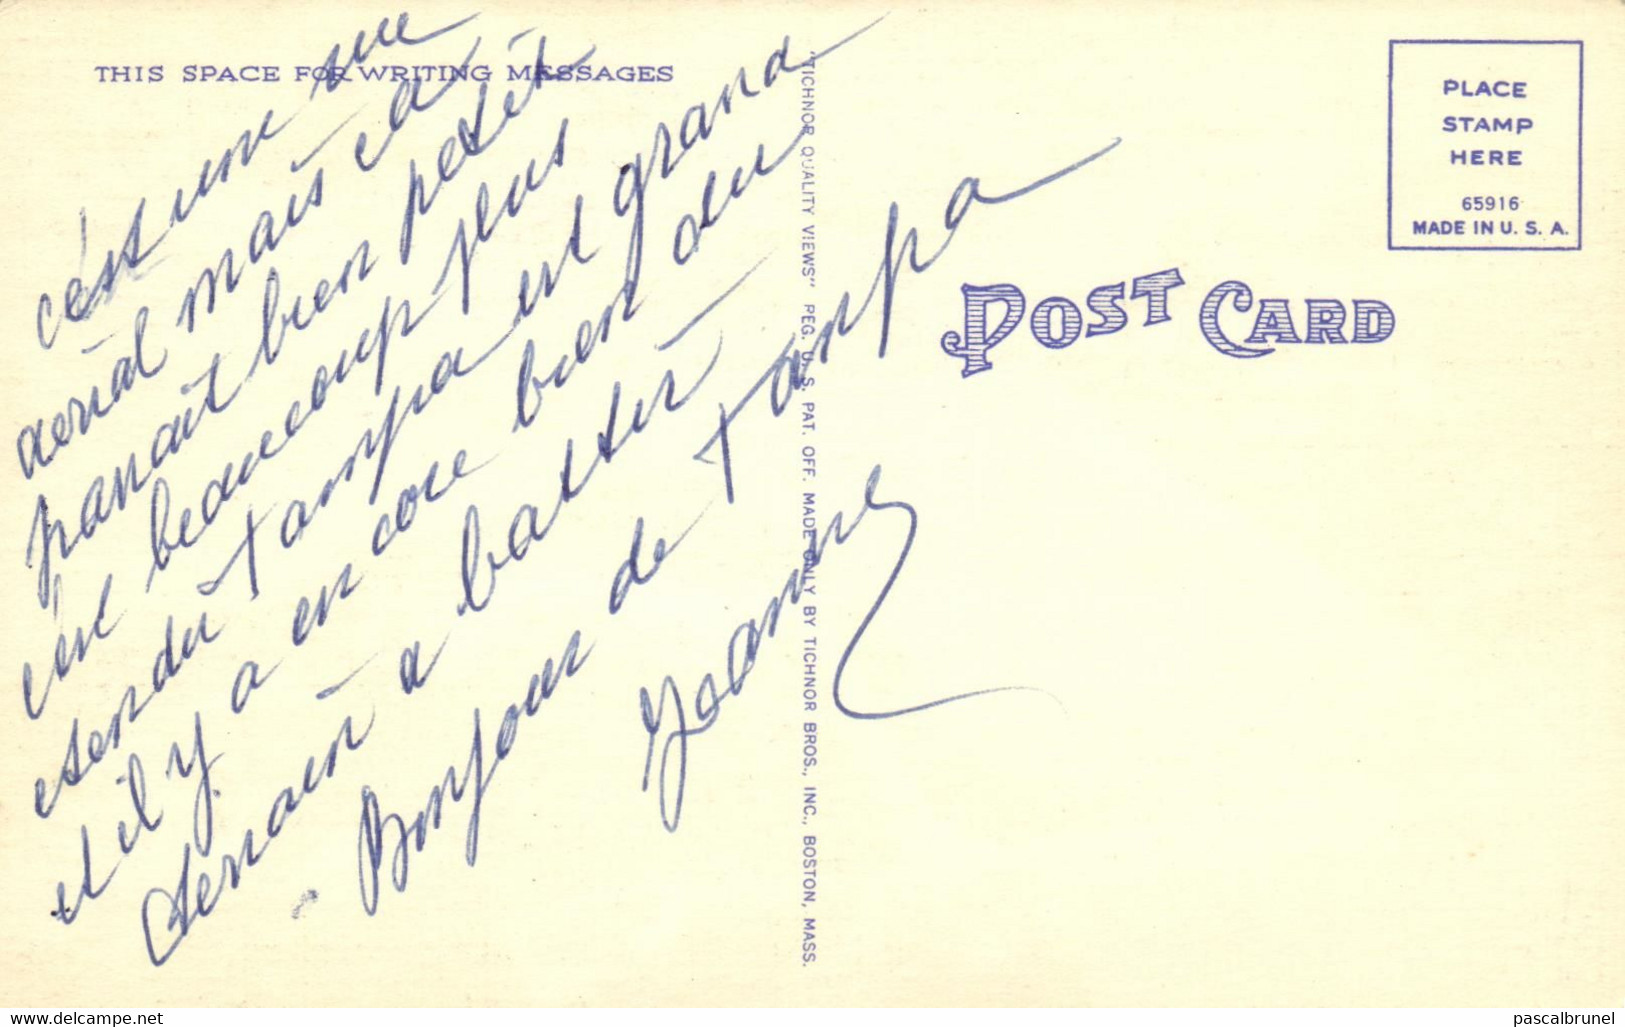 THIS SPACE FOR WRITING MESSAGES
c'est une vue
aerial mais ca
parrait bien petit
c'est beaucoup plus
etendu tampa est grand
et il y a en core bien du
terrain a battir
Bonjour de tampa
Jeanne
"TICHNOR QUALITY VIEWS" REG. U. S. PAT. OFF. MADE ONLY BY TICHNOR BROS., INC., BOSTON, MASS.
PLACE
STAMP
HERE
65916
MADE IN U. S. A.
POST CARD
delcampe.net
pascalbrunel